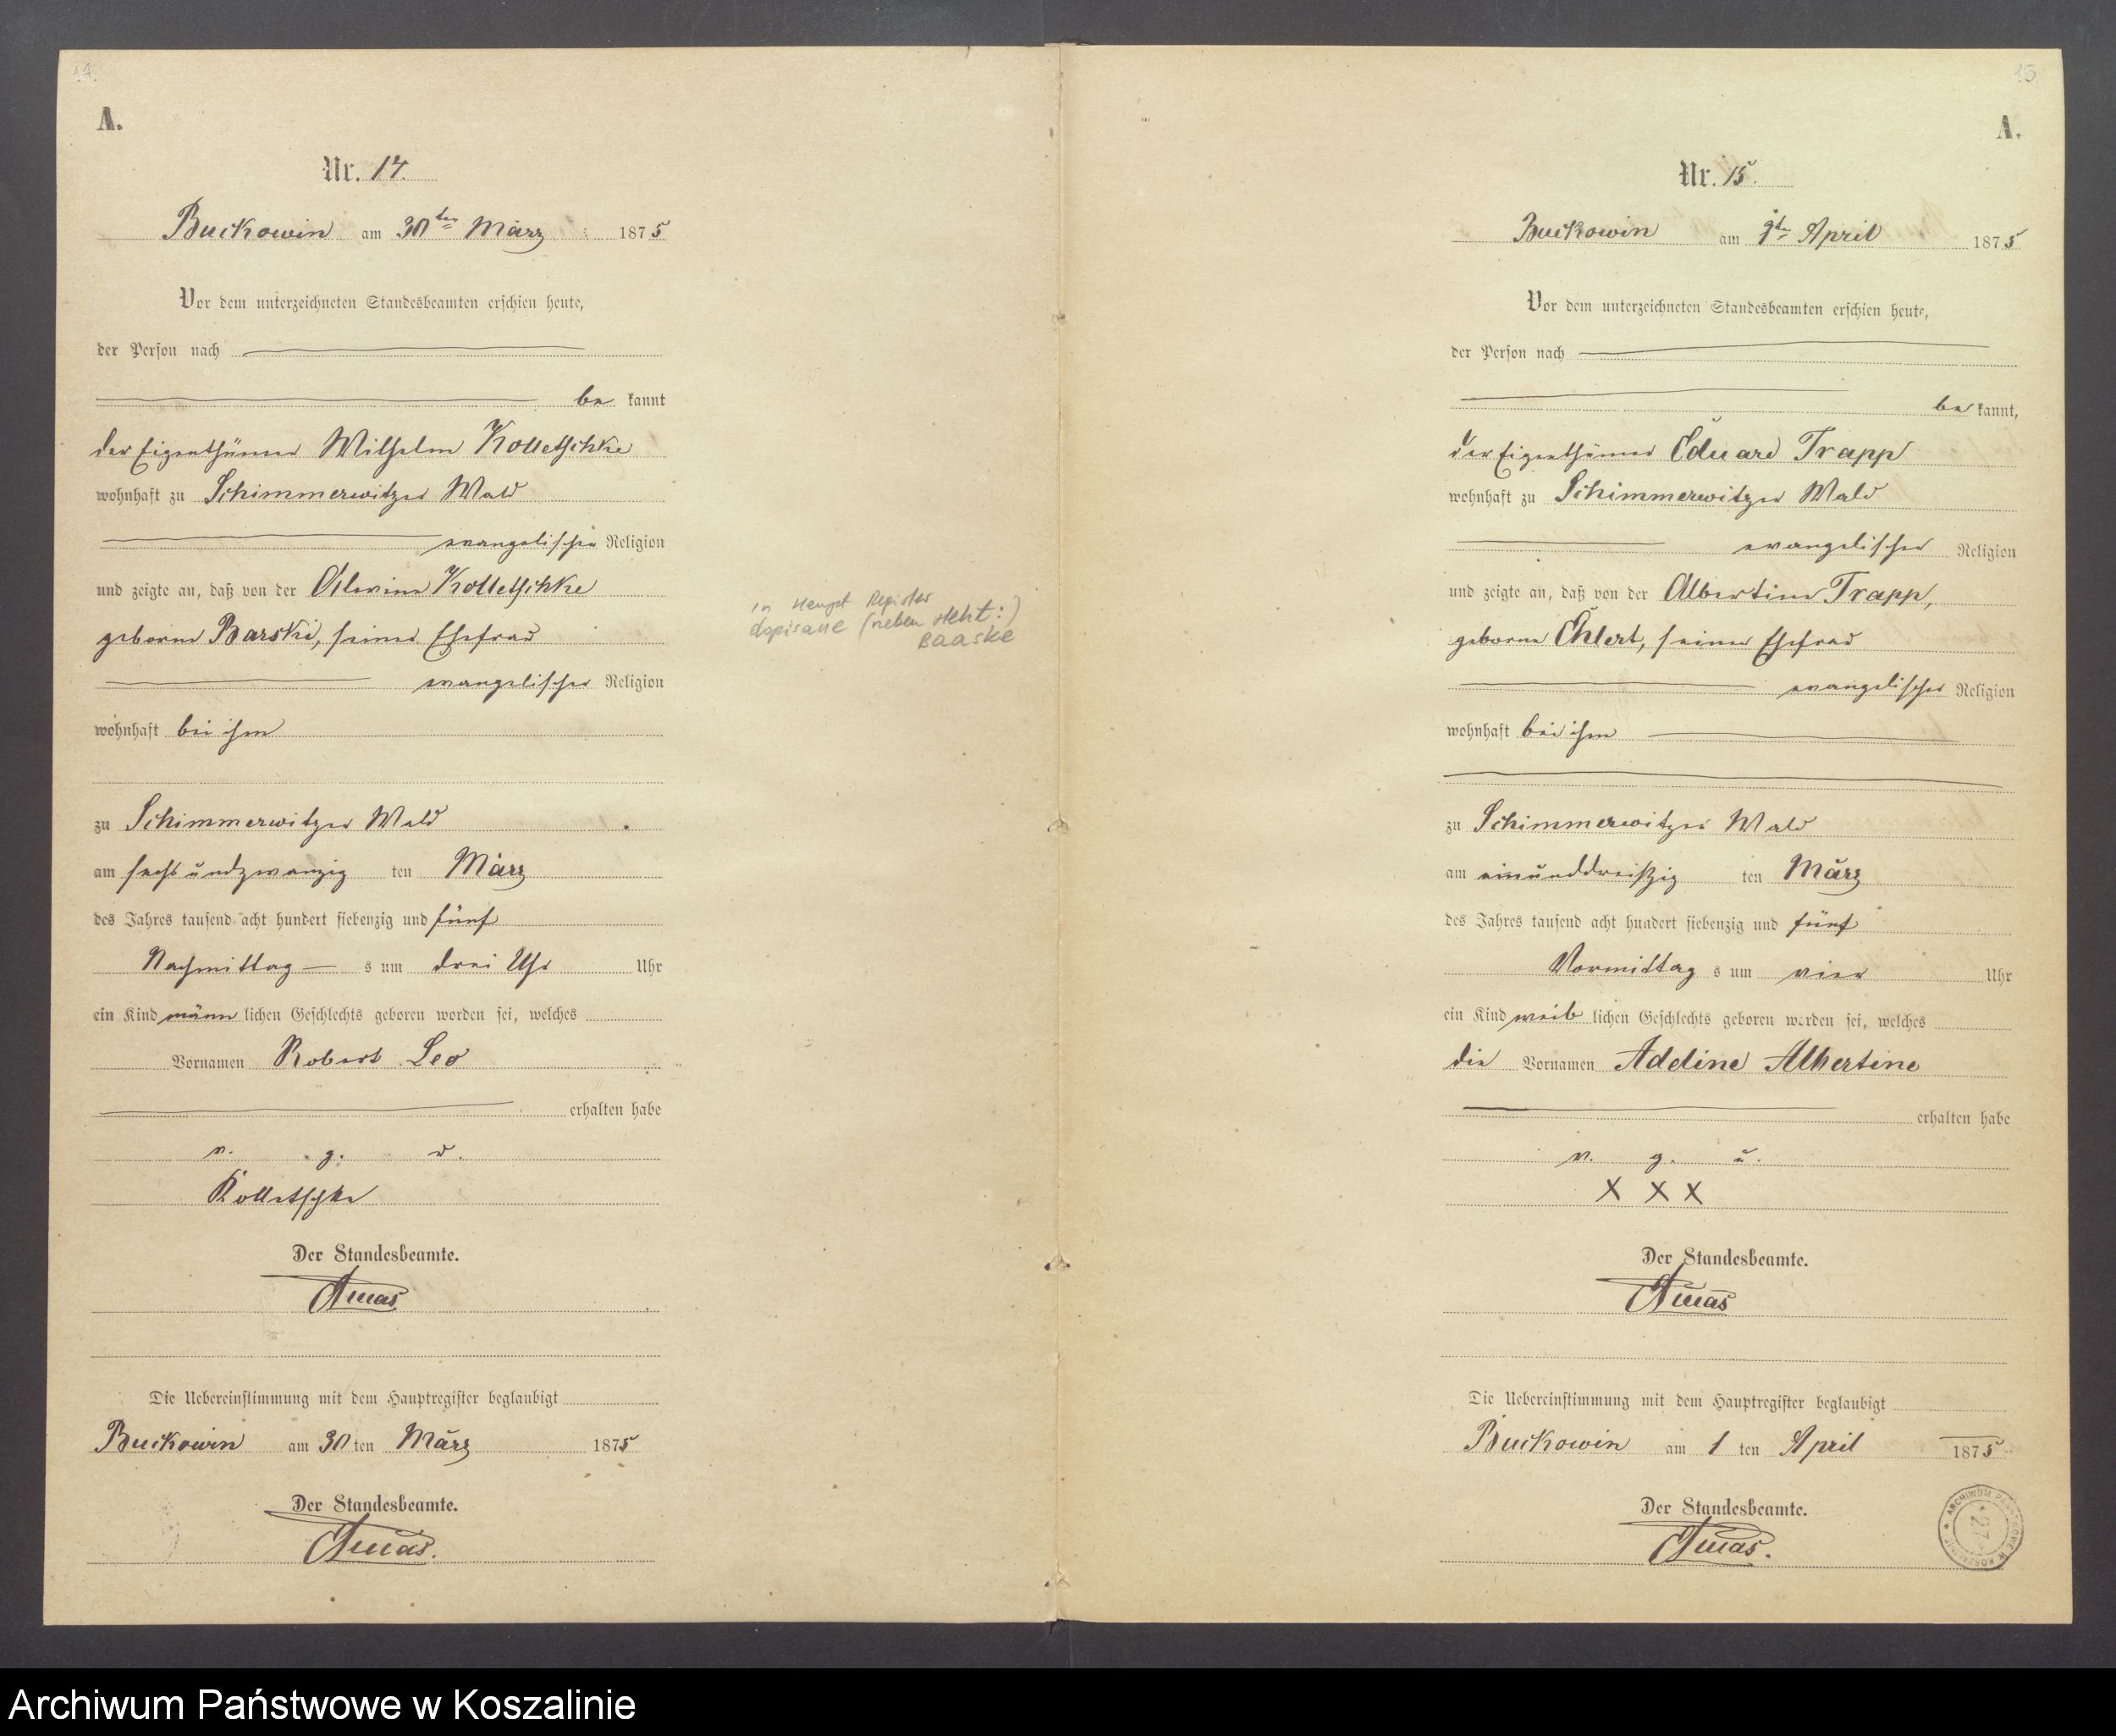 14.
A.
Nr. 14.
Buckowin am 30ten März 1875
Vor dem unterzeichneten Standesbeamten erschien heute,
der Person nach
be kannt
der Eigenthümer Wilhelm Kolletschke
wohnhaft zu Schimmerwitzer Wald
evangelischer Religion
und zeigte an, daß von der Alwine Kolletschke
geborne Barski, seiner Ehefrau
evangelischer Religion
wohnhaft bei ihm
zu Schimmerwitzer Wald
am sechsundzwanzig ten März
des Jahres tausend acht hundert siebenzig und fünf
Nachmittag s um drei Uhr Uhr
ein Kind männ lichen Geschlechts geboren worden sei, welches
Vornamen Robert Leo
erhalten habe
v. g. u.
Kolletschke
Der Standesbeamte.
Die Uebereinstimmung mit dem Hauptregister beglaubigt
Buckowin am 30 ten März 1875
Der Standesbeamte.
in Register
dopisane (neben steht:)
Baaske
15
A.
Nr. 15.
Buckowin am 1ten April 1875
Vor dem unterzeichneten Standesbeamten erschien heute,
der Person nach
be kannt,
der Eigenthümer Eduard Trapp
wohnhaft zu Schimmerwitzer Wald
evangelischer Religion
und zeigte an, daß von der Albertine Trapp,
geborne Ehlert, seiner Ehefrau
evangelischer Religion
wohnhaft bei ihm
zu Schimmerwitzer Wald
am einunddreißig ten März
des Jahres tausend acht hundert siebenzig und fünf
Vormittag s um vier Uhr
ein Kind weib lichen Geschlechts geboren worden sei, welches
die Vornamen Adeline Albertine
erhalten habe
v. g. u.
X X X
Der Standesbeamte.
Die Uebereinstimmung mit dem Hauptregister beglaubigt
Buckowin am 1 ten April 1875
Der Standesbeamte.
ARCHIWUM PAŃSTWOWE W KOSZALINIE
27
Archiwum Państwowe w Koszalinie